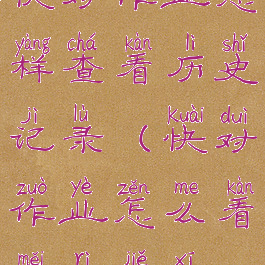 yàng chá kàn lì shǐ
样查看历史
jì lù kuài duì
记录（快对
zuò yè zěn me kàn
作业怎么看
měi rì jiě xī